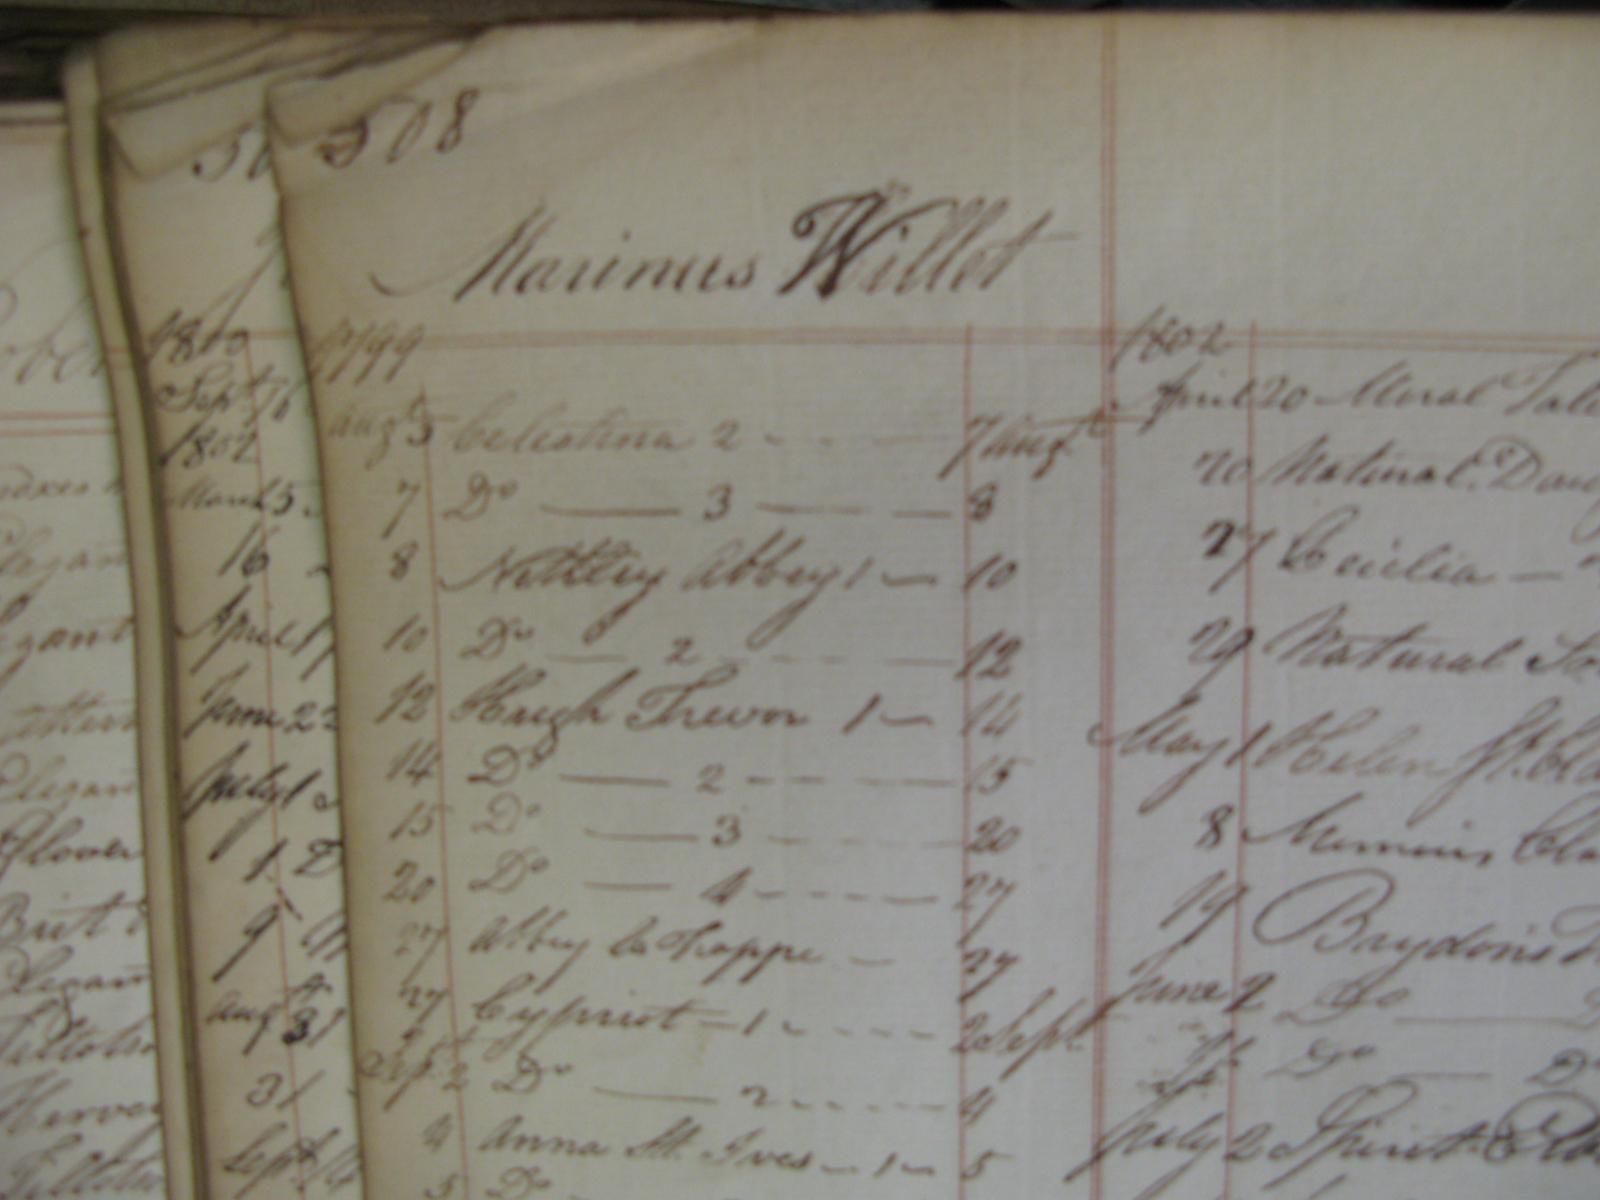 508
Marinus Willet
1799
Augt 5 Celestina 2 - - - 7 Augt
7 Do — 3 — 8
8 Nettley Abbey 1 — 10
10 Do — 2 - - - 12
12 Hugh Trevor 1 — 14
14 Do — 2 - - - 15
15 Do — 3 - - - 20
20 Do — 4 - - - 27
27 Abbey la Trappe — 27
27 Cypriot — 1 - - - 2 Sept
Sept 2 Do — 2 - - - 4
4 Anna St. Ives — 1 — 5
5 Do
1802
April 20 Moral Tale
20 Natural Daug
27 Cecilia —
29 Natural So
May 1 Helen St. Cla
8 Cla
19 Brydon's
June 2 Do
Do — Do
July 2 Spirit
50
1800
Sept 16
1802
March 5
16
April 17
June 22
July 1
1 D
9
Augt 31
31
Sept
Elegan
Glover
Brit
Elegan
Herve